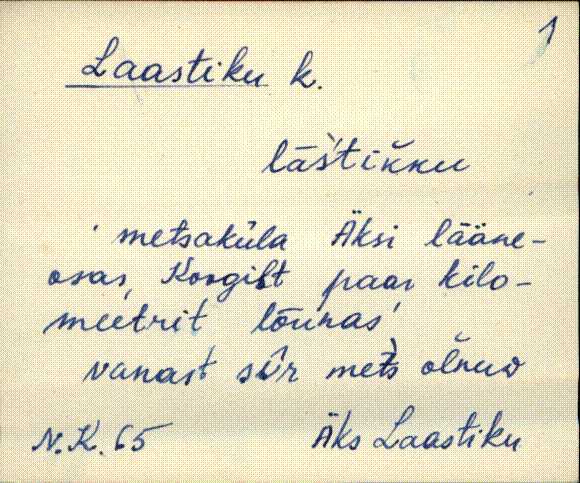 1
Laastiku k.
lāš̀tik̆ku
' metsaküla Äksi lääne-
osas, Koogilt paar kilo-
meetrit lõunas'
vanast sūr metš olnuᴅ
N.K. 65 Äks Laastiku